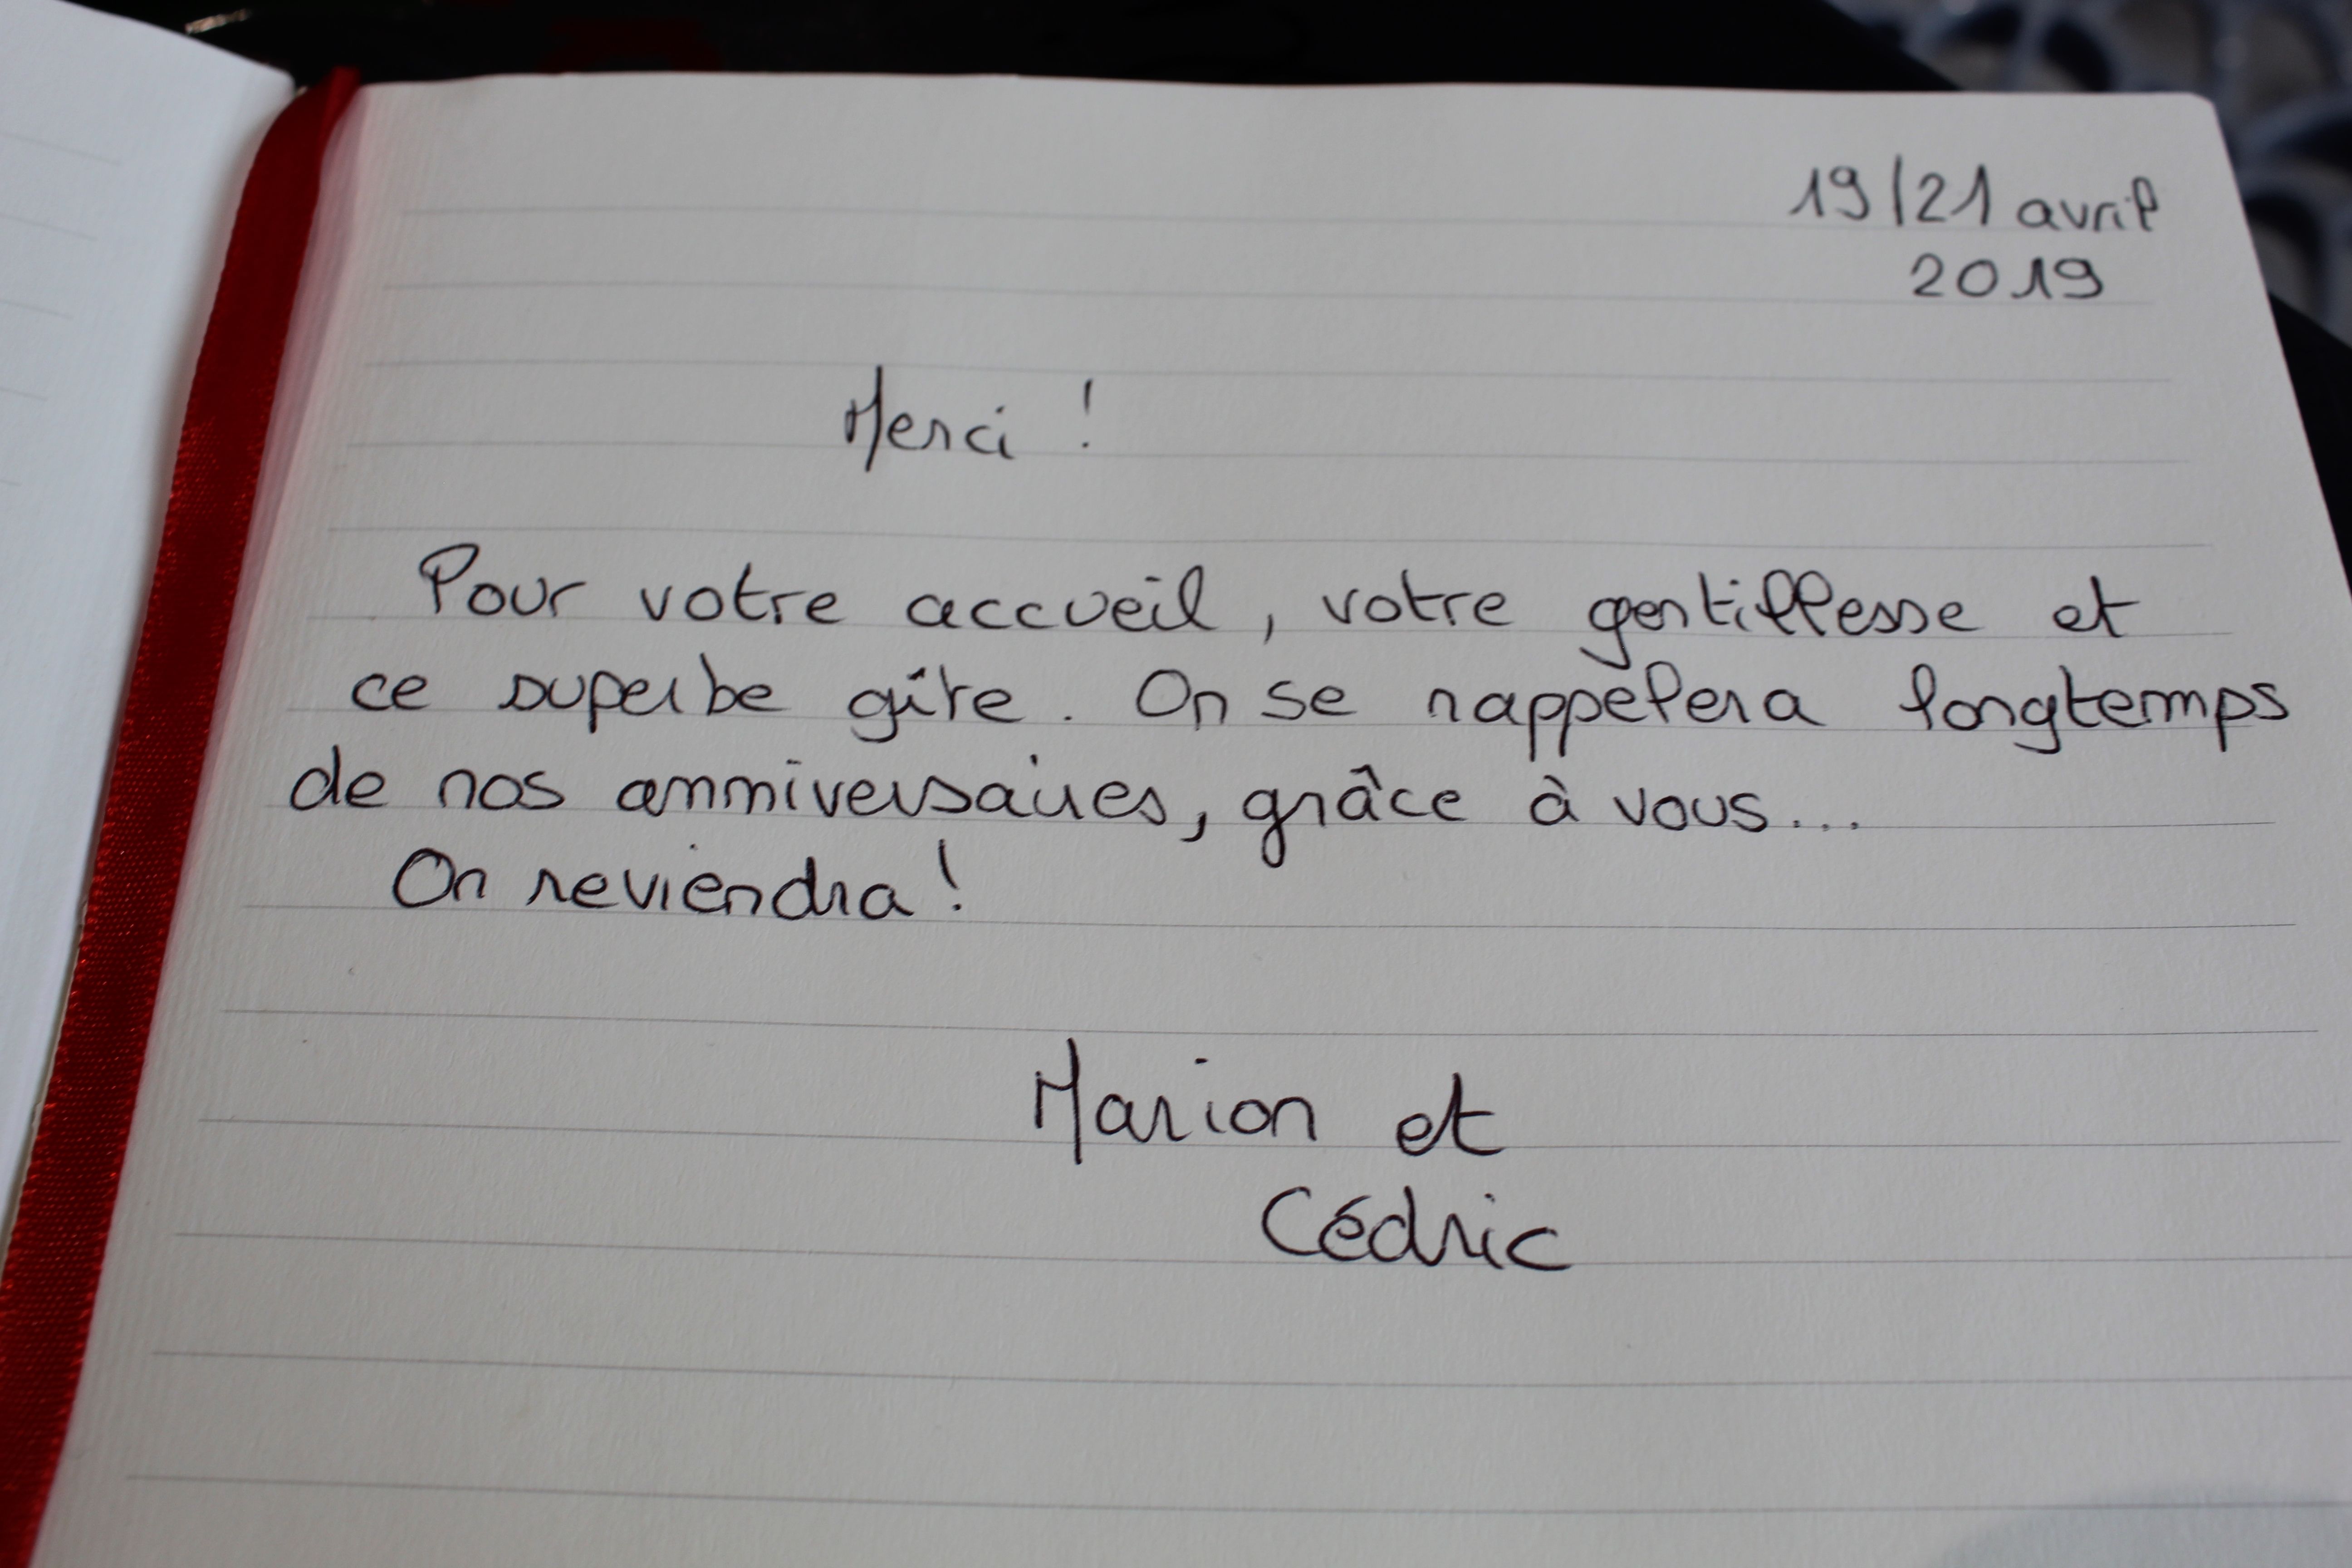 19/21 avril
2019
Merci !
Pour votre accueil, votre gentillesse et
ce superbe gîte. On se rappelera longtemps
de nos anniversaires, grâce à vous...
On reviendra !
Marion et
Cédric